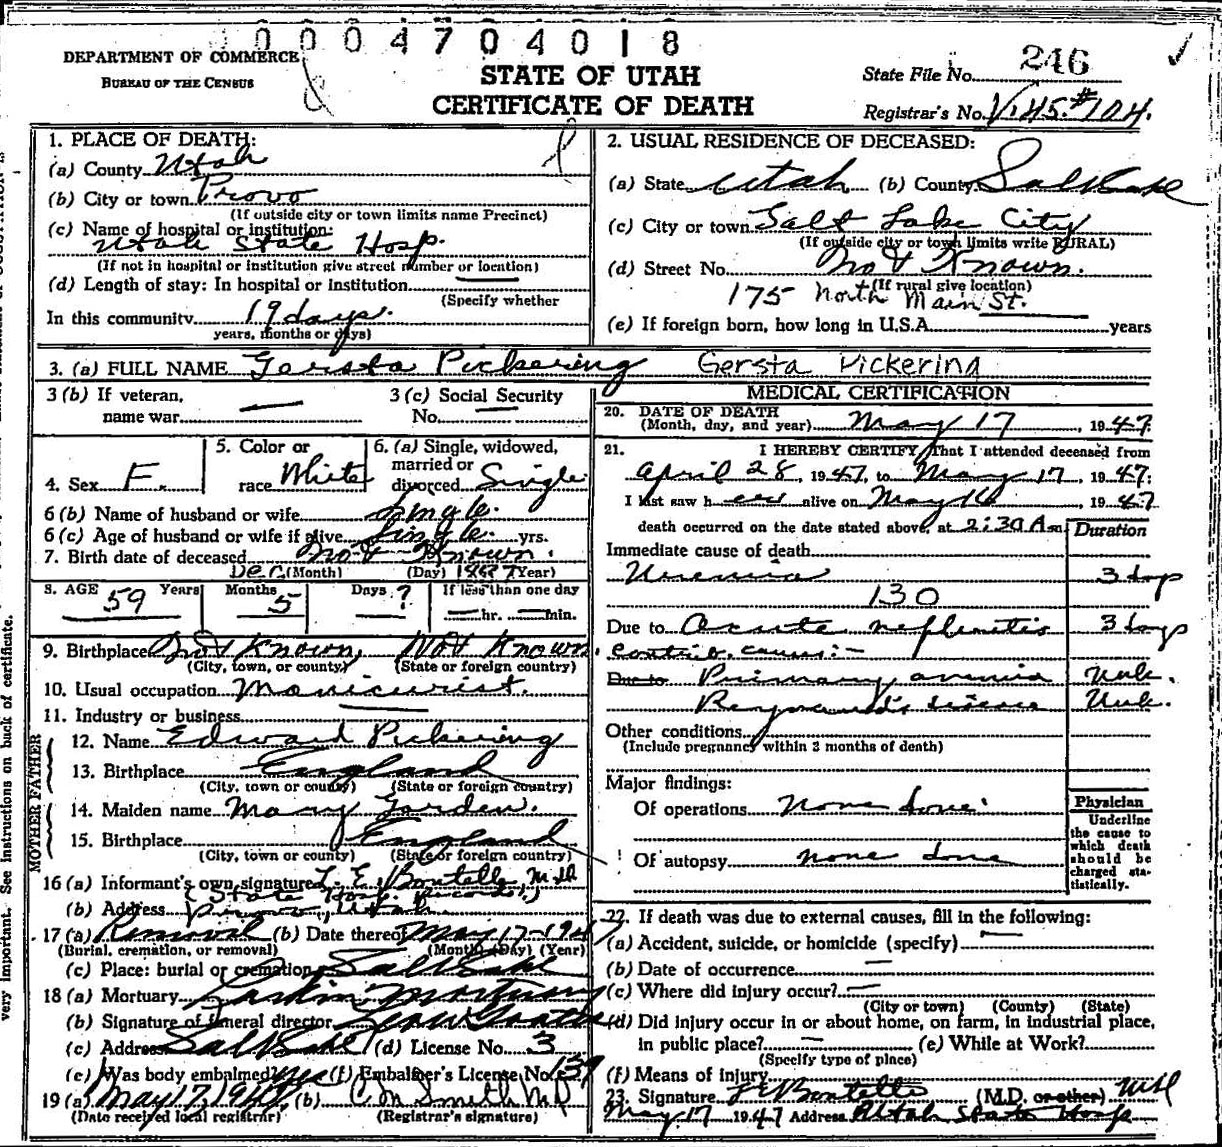 0004704018
DEPARTMENT OF COMMERCE
BUREAU OF THE CENSUS
STATE OF UTAH
CERTIFICATE OF DEATH
State File No. 246
Registrar's No. V.145.#104.
1. PLACE OF DEATH:
(a) County Utah
(b) City or town Provo
(If outside city or town limits name Precinct)
(c) Name of hospital or institution:
Utah State Hosp.
(If not in hospital or institution give street number or location)
(d) Length of stay: In hospital or institution
(Specify whether
In this community 19 days.
years, months or days)
2. USUAL RESIDENCE OF DECEASED:
(a) State Utah (b) County Salt Lake
(c) City or town Salt Lake City
(If outside city or town limits write RURAL)
(d) Street No. Not Known.
(If rural give location)
175 North Main St.
(e) If foreign born, how long in U.S.A. years
3. (a) FULL NAME Gersta Pickering Gersta Pickering
3 (b) If veteran,
name war —
3 (c) Social Security
No. —
4. Sex F.
5. Color or
race White
6. (a) Single, widowed,
married or
divorced Single
6 (b) Name of husband or wife Single.
6 (c) Age of husband or wife if alive Single. yrs.
7. Birth date of deceased Not Known.
Dec. (Month) (Day) 1887 (Year)
8. AGE 59 Years Months 5 Days ? If less than one day
hr. min.
9. Birthplace Not Known, Not Known.
(City, town, or county) (State or foreign country)
10. Usual occupation Manicurist.
11. Industry or business
MOTHER FATHER
12. Name Edward Pickering
13. Birthplace England
(City, town or county) (State or foreign country)
14. Maiden name Mary Jorden.
15. Birthplace England
(City, town or county) (State or foreign country)
16 (a) Informant's own signature L. E. Bontelle, M.D.
(State Hosp. Records.)
(b) Address Provo, Utah.
17 (a) Removal (b) Date thereof May 17-1947
(Burial, cremation, or removal) (Month) (Day) (Year)
(c) Place: burial or cremation Salt Lake
18 (a) Mortuary Larkin Mortuary
(b) Signature of funeral director
(c) Address Salt Lake (d) License No. 3
(e) Was body embalmed? yes (f) Embalmer's License No. 139
19 (a) May 17, 1947 (b) C M Smith MD
(Date received local registrar) (Registrar's signature)
MEDICAL CERTIFICATION
20. DATE OF DEATH
(Month, day, and year) May 17, 1947.
21. I HEREBY CERTIFY, That I attended deceased from
April 28, 1947, to May 17, 1947.
I last saw her alive on May 16, 1947
death occurred on the date stated above, at 2:30 A.m.
Duration
Immediate cause of death
Uremia 3 days
130
Due to Acute nephritis 3 days
Contrib. cause:-
Due to Primary anemia Unk.
Raynaud's disease Unk.
Other conditions
(Include pregnancy within 3 months of death)
Major findings:
Of operations None done.
Of autopsy none done
Physician
Underline
the cause to
which death
should be
charged sta-
tistically.
22. If death was due to external causes, fill in the following:
(a) Accident, suicide, or homicide (specify) —
(b) Date of occurrence —
(c) Where did injury occur? —
(City or town) (County) (State)
(d) Did injury occur in or about home, on farm, in industrial place,
in public place? — (e) While at Work?
(Specify type of place)
(f) Means of injury
23. Signature L E Bontelle (M.D. or other) MD
May 17 1947 Address Utah State Hosp
very important. See instructions on back of certificate.